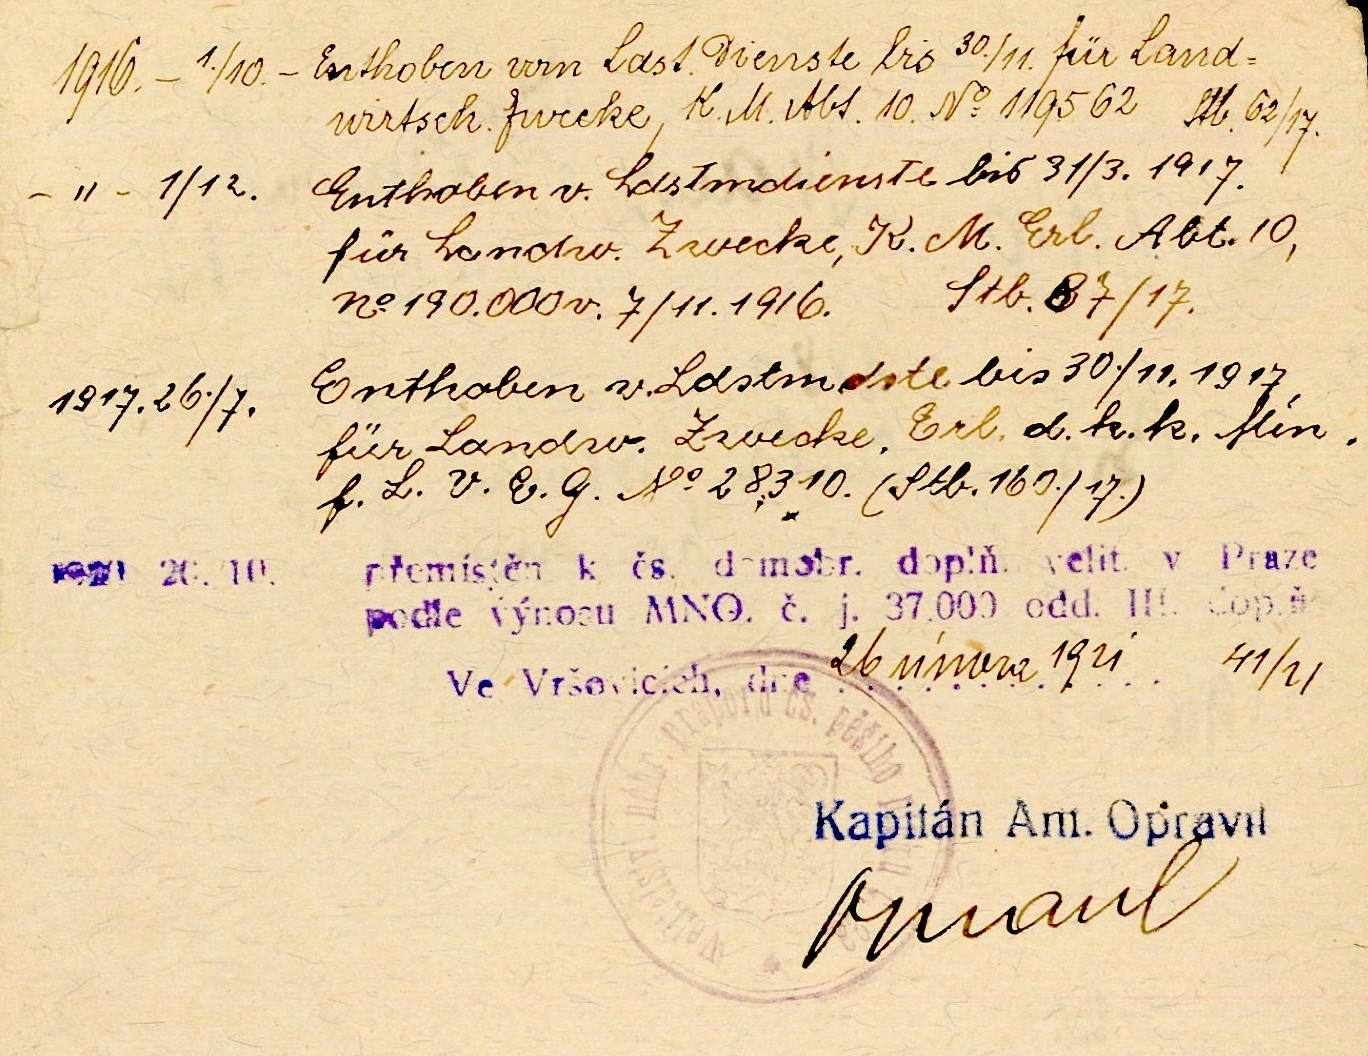 1916. – 1./10. – Enthoben vom Ldst. Dienste bis 30./11. für Land=
wirtsch. Zwecke, K. M. Abt. 10. No 119562 Stb. 62/17.
– " – 1/12. Enthoben v. Ldstmdienste bis 31/3. 1917.
für Landw. Zwecke, K. M. Erl. Abt. 10,
No 190.000 v. 7/11. 1916. Stb. 87/17.
1917. 26./7. Enthoben v. Ldstmdste bis 30./11. 1917
für Landw. Zwecke, Erl. d. k. k. Min.
f. L. V. E. G. No 28310. (Stb. 160./17.)
1920 20. 10. přemístěn k čs. domobr. doplň. velit. v Praze
podle výnosu MNO. č. j. 37.000 odd. III. doplň
Ve Vršovicích, dne 26 února 1921 41/21
Velitelství náhr. praporu čs. pěšího pluku
Kapitán Ant. Opravil
Opravil